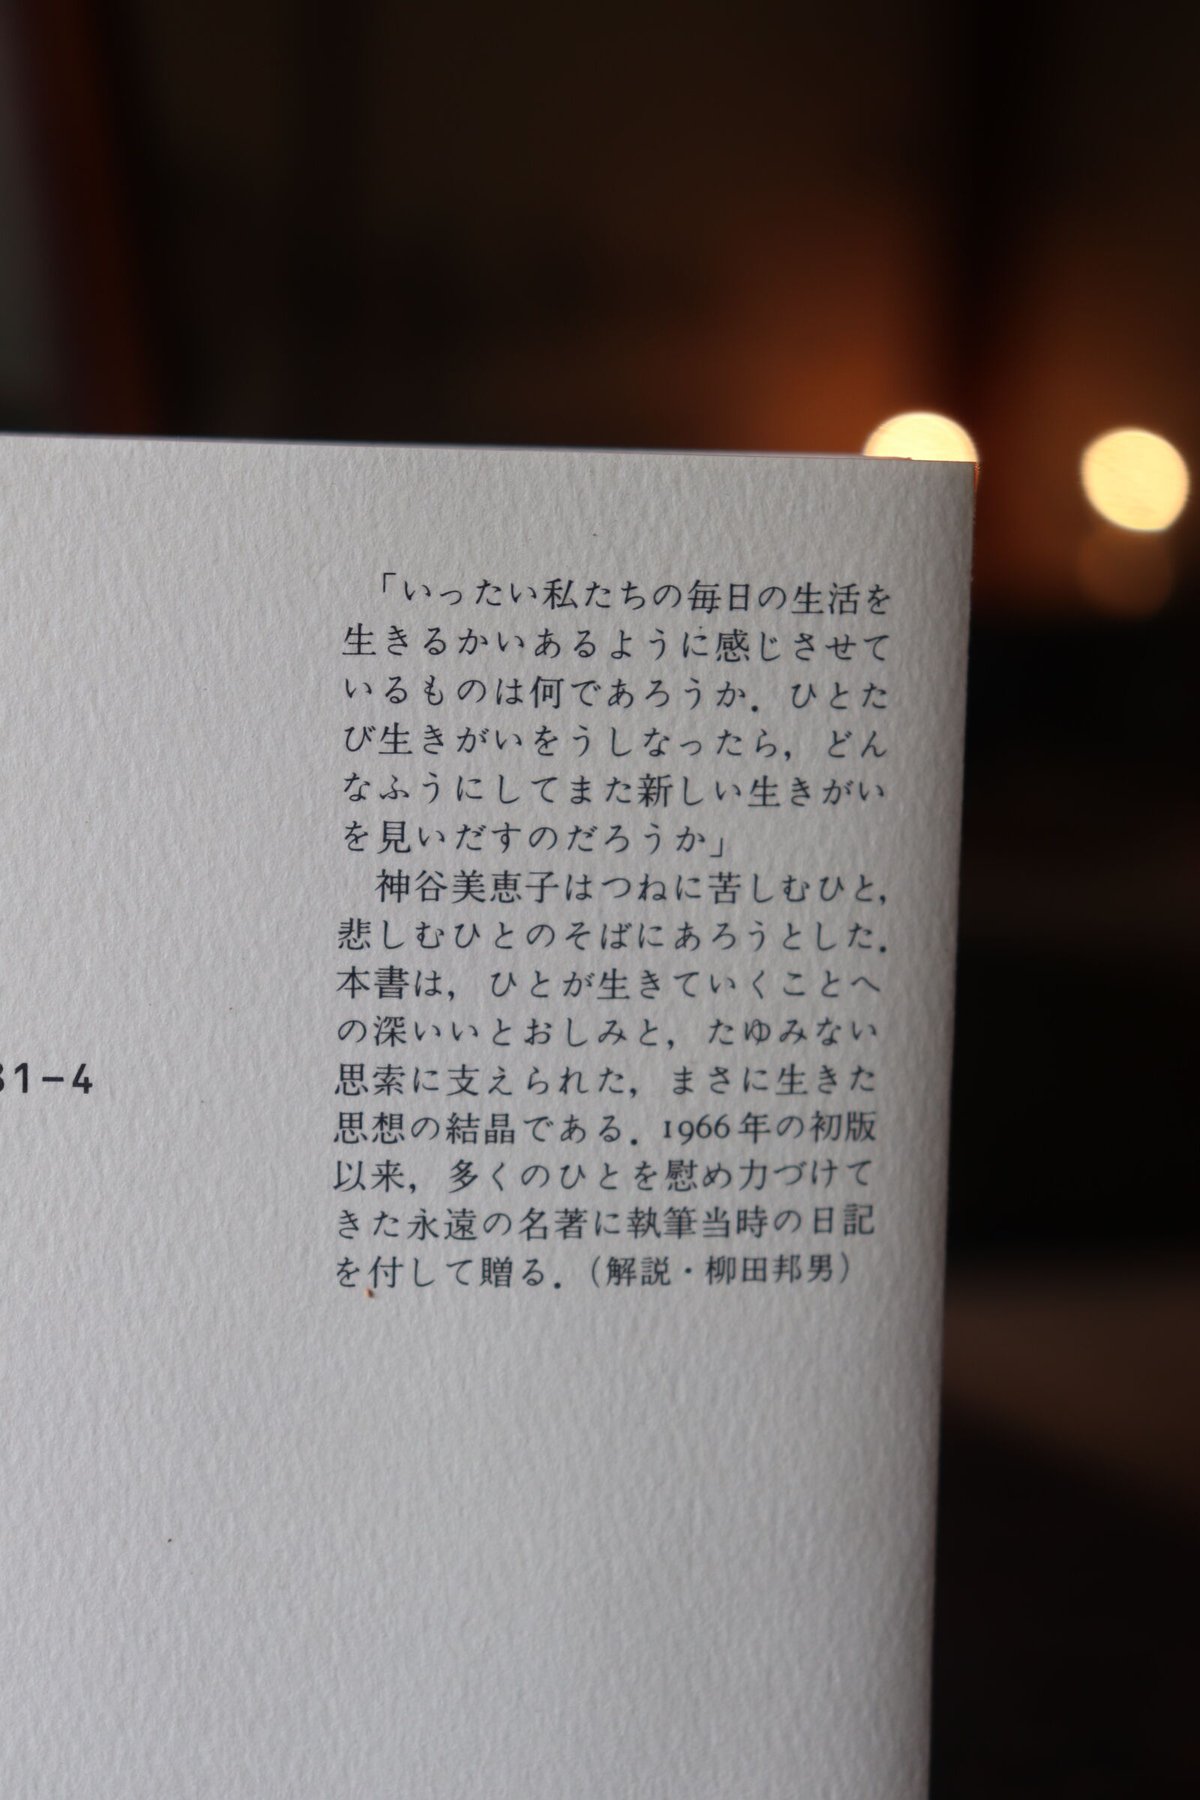 「いったい私たちの毎日の生活を
生きるかいあるように感じさせて
いるものは何であろうか．ひとた
び生きがいをうしなったら，どん
なふうにしてまた新しい生きがい
を見いだすのだろうか」
神谷美恵子はつねに苦しむひと，
悲しむひとのそばにあろうとした．
本書は，ひとが生きていくことへ
の深いいとおしみと，たゆみない
思索に支えられた，まさに生きた
思想の結晶である．1966年の初版
以来，多くのひとを慰め力づけて
きた永遠の名著に執筆当時の日記
を付して贈る．（解説・柳田邦男）
31-4